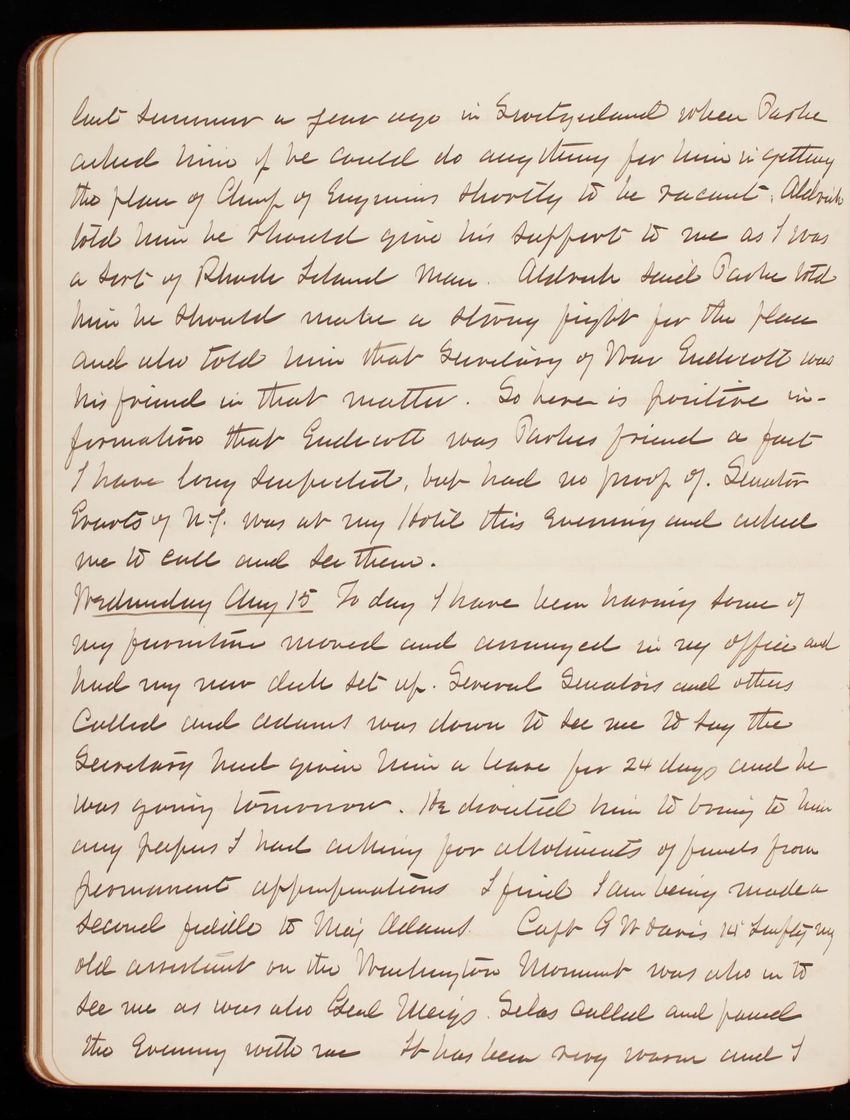 last summer a year ago in Switzerland when Parke
asked him if he could do anything for him in getting
the place of Chief of Engineers shortly to be vacant. Aldrich
told him he should give his support to me as I was
a sort of Rhode Island man. Aldrich said Parke told
him he should make a strong fight for the place
and also told him that Secretary of War Endicott was
his friend in that matter. So here is positive in-
formation that Endicott was Parkes friend a fact
I have long suspected, but had no proof of. Senator
Evarts of N.Y. was at my Hotel this evening and asked
me to call and see them.
Wednesday Aug 15 To day I have been having some of
my furniture moved and arranged in my office and
had my new desk set up. Several Senators and others
called and Adams was down to see me to say the
Secretary had given him a leave for 24 days and he
was going tomorrow. He directed him to bring to him
any papers I had asking for allotments of funds from
permanent appropriations I find I am being made a
second fiddle to Maj Adams. Capt G W Davis 14 Infty my
old assistant on the Washington Monument was also in to
see me as was also Genl Meigs. Selas called and passed
the evening with me It has been very warm and I